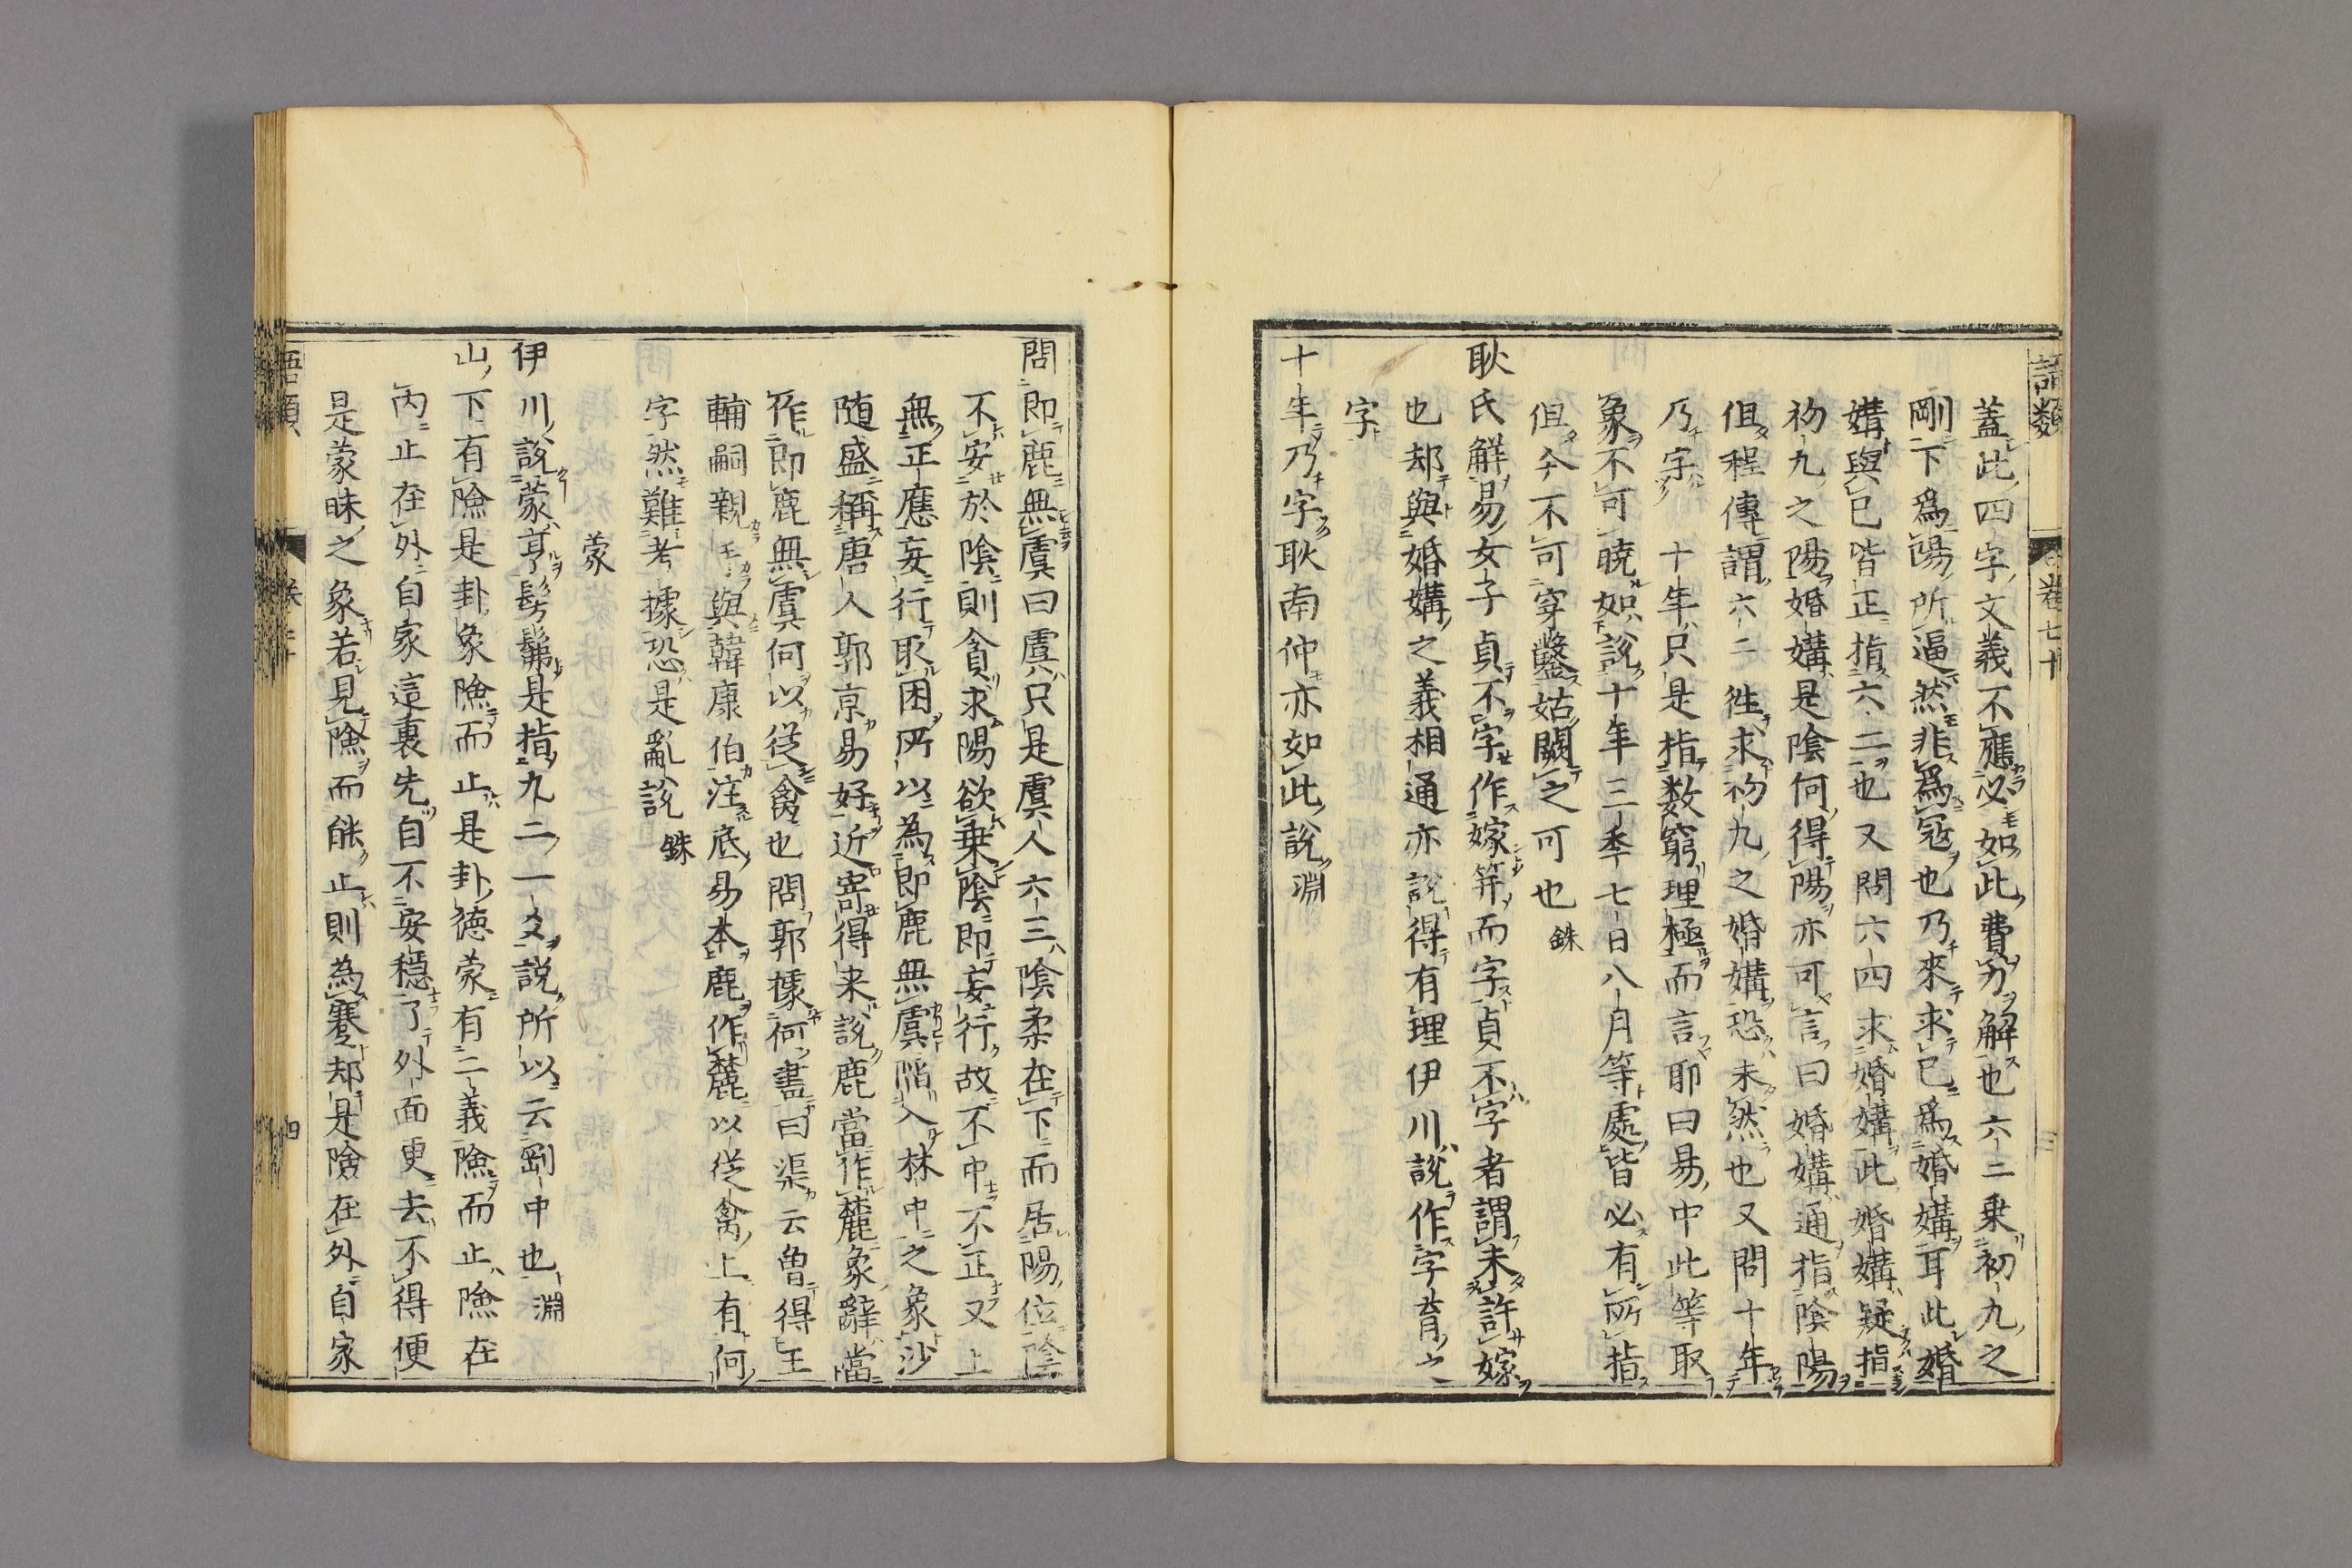 語類
卷七十
蓋此四字文義不應必如此費力解也六二乗初九之
剛下爲陽所逼然非爲冦也乃來求已爲婚媾耳此婚
媾與已皆正指六二也又問六四求婚媾此婚媾疑指
初九之陽婚媾是陰何得陽亦可言曰婚媾通指陰陽
但程傳謂六二徃求初九之婚媾恐未然也又問十年
乃字 十年只是指数窮理極而言耶曰易中此等取
象不可曉如說十年三秊七日八月等處皆必有所指
但今不可穿鑿姑闕之可也銖
耿氏解易女子貞不字作嫁笄而字貞不字者謂未許嫁
也却與婚媾之義相通亦說得有理伊川說作字育之
字
十年乃字耿南仲亦如此說淵
問即鹿無虞曰虞只是虞人六三陰柔在下而居陽位陰
不安於陰則貪求陽欲乗陰即妄行故不中不正又上
無正應妄行取困所以為即鹿無虞陷入林中之象沙
随盛稱唐人郭京易好近寄得来說鹿當作麓象辭當
作即鹿無虞何以從禽也問郭據何書曰渠云曽得王
輔嗣親手與韓康伯注底易本鹿作麓以從禽上有何
字然難考據恐是亂說銖
蒙
伊川說蒙亨髣髴是指九二一爻說所以云剛中也淵
山下有險是卦象險而止是卦德蒙有二義險而止險在
内止在外自家這裏先自不安穩了外面更去不得便
是蒙昧之象若見險而能止則為蹇却是險在外自家
語類
四